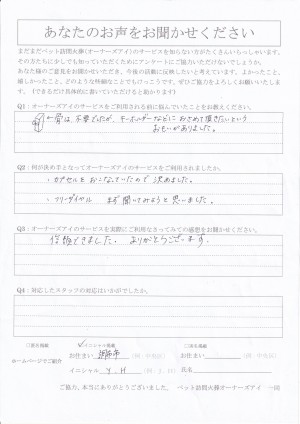 あなたのお声をお聞かせください
まだまだペット訪問火葬(オーナーズアイ)のサービスを知らない方がたくさんいらっしゃいます。
その方たちに少しでも知っていただくためにアンケートにご協力いただけないでしょうか。
あなた様のご意見をお聞かせいただき、今後の活動に反映したいと考えています。よかったこと、
嬉しかったこと、どのような些細なことでもけっこうです。ぜひご協力をよろしくお願いいたします。(できるだけ具体的に書いていただけると助かります)
Q1:オーナーズアイのサービスをご利用される前に悩んでいたことをお教えください。
骨は、不要でしたが、キーホルダーなどにおさめて頂きたいという
おもいがありました。
Q2:何が決め手となってオーナーズアイのサービスをご利用されましたか。
・カプセルをおこなっていたので決めました。
・フリーダイヤル まず聞いてみようと思いました。
Q3:オーナーズアイのサービスを実際にご利用なさってみての感想をお聞かせください。
信頼できました。ありがとうございます。
Q4:対応したスタッフの対応はいかがでしたか。
ホームページでご紹介
□イニシャル掲載
□実名掲載
お住まい
イニシャル Y.H
お住まい
氏名
ご協力、本当にありがとうございました。 ペット訪問火葬オーナーズアイ 一同